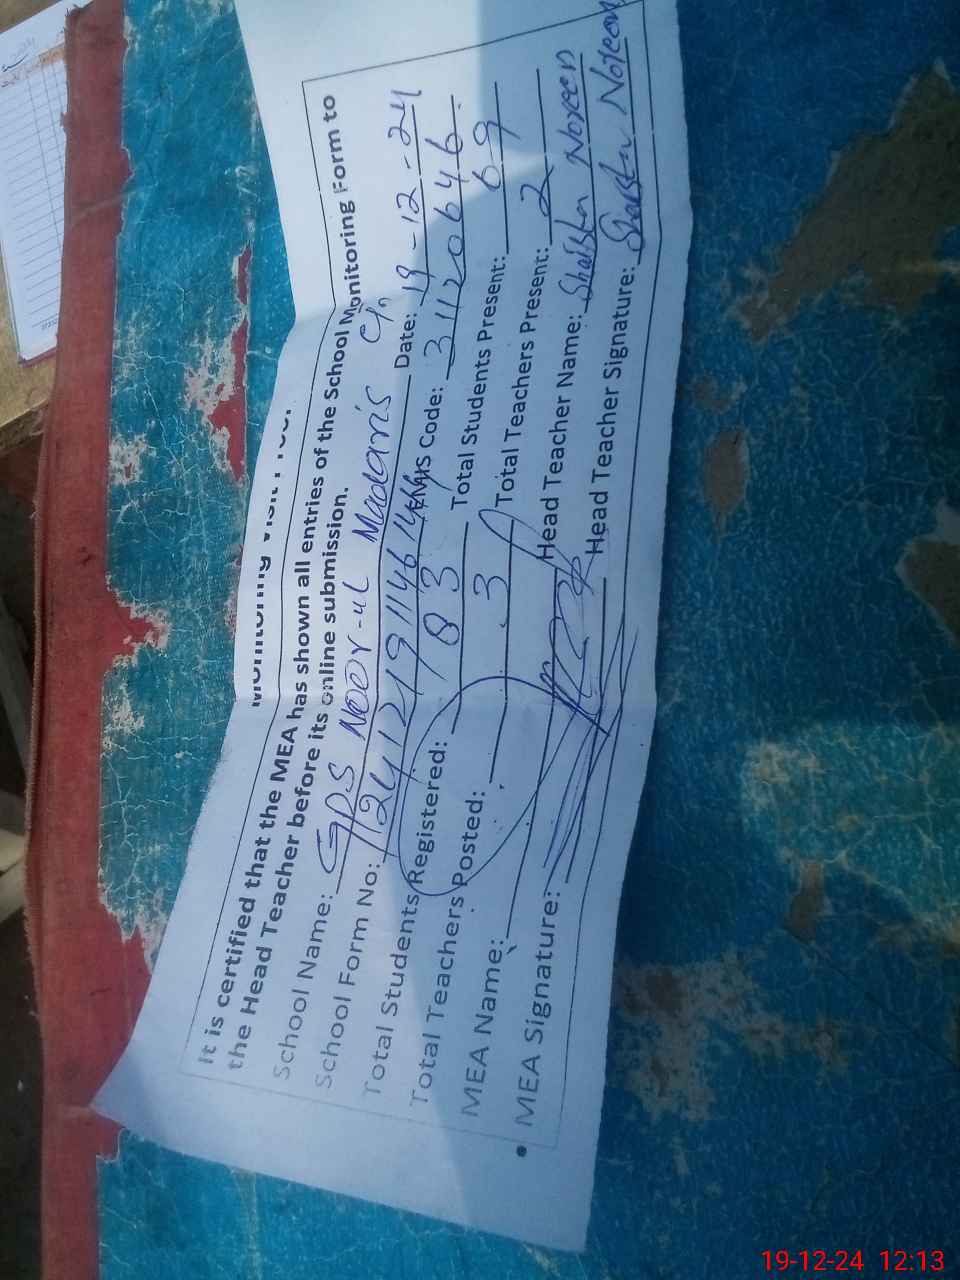 It is certified that the MEA has shown all entries of the School Monitoring Form to
the Head Teacher before its online submission.
School Name: GPS Noor-ul Madaris Date: 19-12-24
School Form No: EMIS Code: 31120646
Total Students Registered: 83 Total Students Present: 69
Total Teachers Posted: 3 Total Teachers Present: 2
MEA Name: Head Teacher Name: Noreen
MEA Signature: Head Teacher Signature: Noreen
19-12-24 12:13